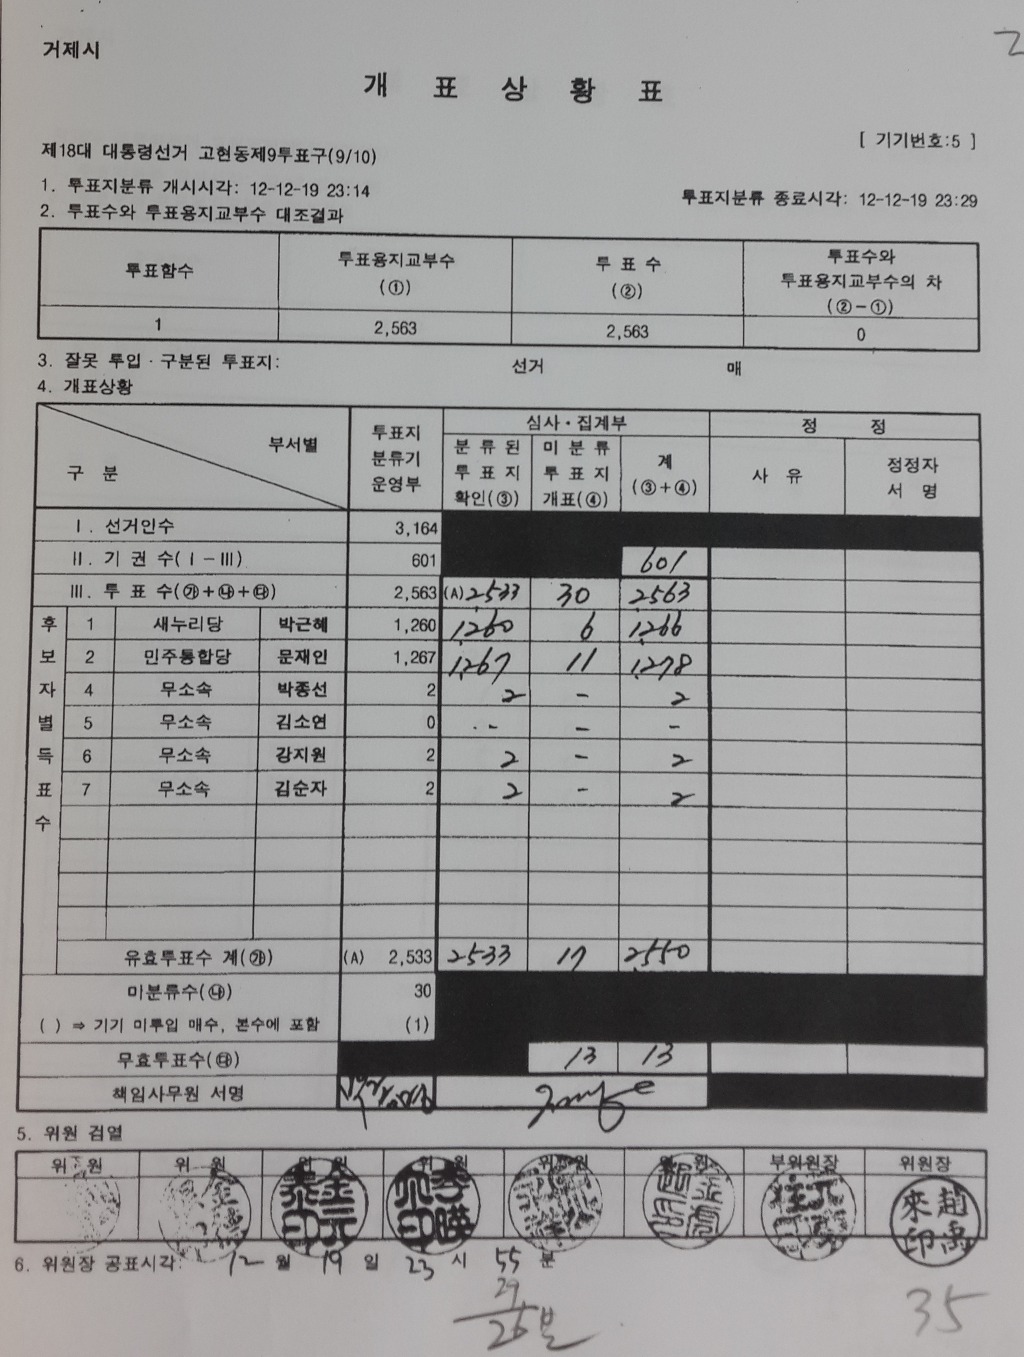 거제시
개 표 상 황 표
[ 기기번호:5 ]
제18대 대통령선거 고현동제9투표구(9/10)
1. 투표지분류 개시시각: 12-12-19 23:14 투표지분류 종료시각: 12-12-19 23:29
2. 투표수와 투표용지교부수 대조결과
투표함수 투표용지교부수 (①) 투 표 수 (②) 투표수와 투표용지교부수의 차 (②-①)
1 2,563 2,563 0
3. 잘못 투입·구분된 투표지: 선거 매
4. 개표상황
구 분 부서별 투표지 분류기 운영부 심사·집계부 정 정
분 류 된 투 표 지 확인(③) 미 분 류 투 표 지 개표(④) 계 (③+④) 사 유 정정자 서 명
Ⅰ. 선거인수 3,164
Ⅱ. 기 권 수(Ⅰ-Ⅲ) 601 601
Ⅲ. 투 표 수(㉮+㉯+㉰) 2,563 (A) 2533 30 2563
후보자별득표수
1 새누리당 박근혜 1,260 1,260 6 1,266
2 민주통합당 문재인 1,267 1,267 11 1,278
4 무소속 박종선 2 2 - 2
5 무소속 김소연 0 - - -
6 무소속 강지원 2 2 - 2
7 무소속 김순자 2 2 - 2
유효투표수 계(㉮) (A) 2,533 2533 17 2550
미분류수(㉯) 30
( ) ⇒ 기기 미투입 매수, 본수에 포함 (1)
무효투표수(㉰) 13 13
책임사무원 서명
5. 위원 검열
위 원 위 원 위 원 위 원 위 원 위 원 부위원장 위원장
趙禹來印
6. 위원장 공표시각: 12 월 19 일 23 시 55 분
29
26분
35